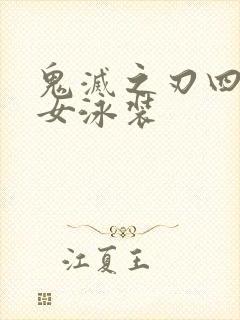 鬼滅之刃四
女泳裝
江夏王